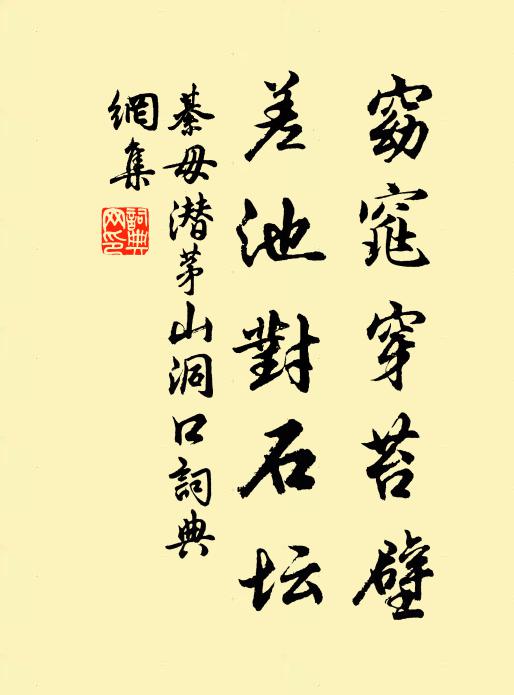 窈窕穿苔壁
差池對石坛
綦毋潜茅山洞口詞典
網集
詞典
网印